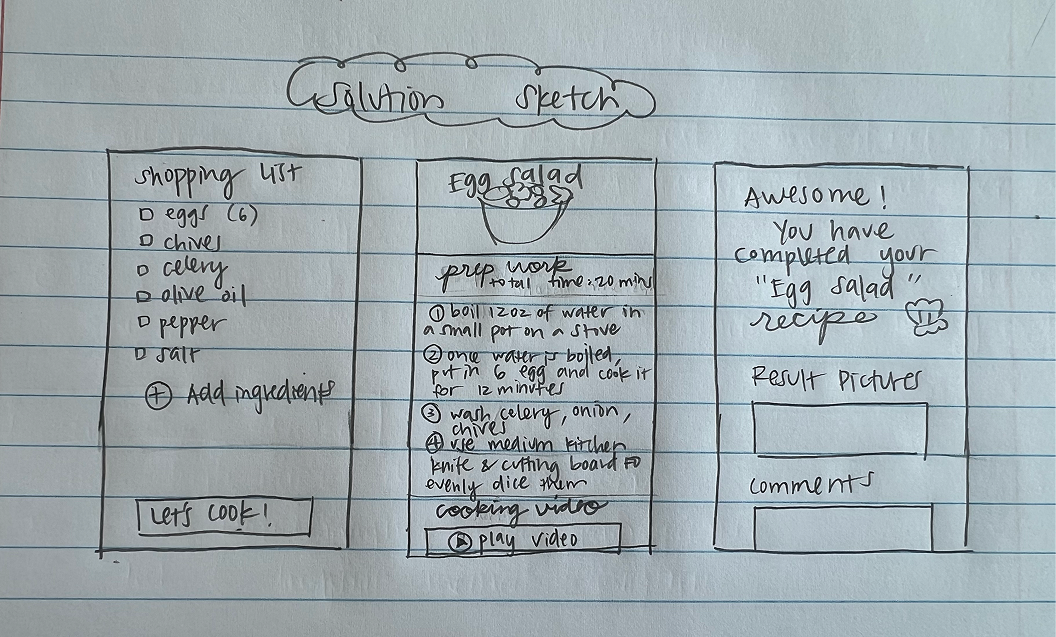 Solution Sketch
Shopping List
eggs (6)
chives
celery
olive oil
pepper
salt
+ Add ingredients
Let's cook!
Egg salad
prep work
total time: 20 mins
① boil 12oz of water in
a small pot on a stove
② once water is boiled,
put in 6 egg and cook it
for 12 minutes
③ wash celery, onion,
chives
④ use medium kitchen
knife & cutting board to
evenly dice them
cooking video
play video
Awesome!
You have
completed your
"Egg salad"
recipe
Result Pictures
Comments